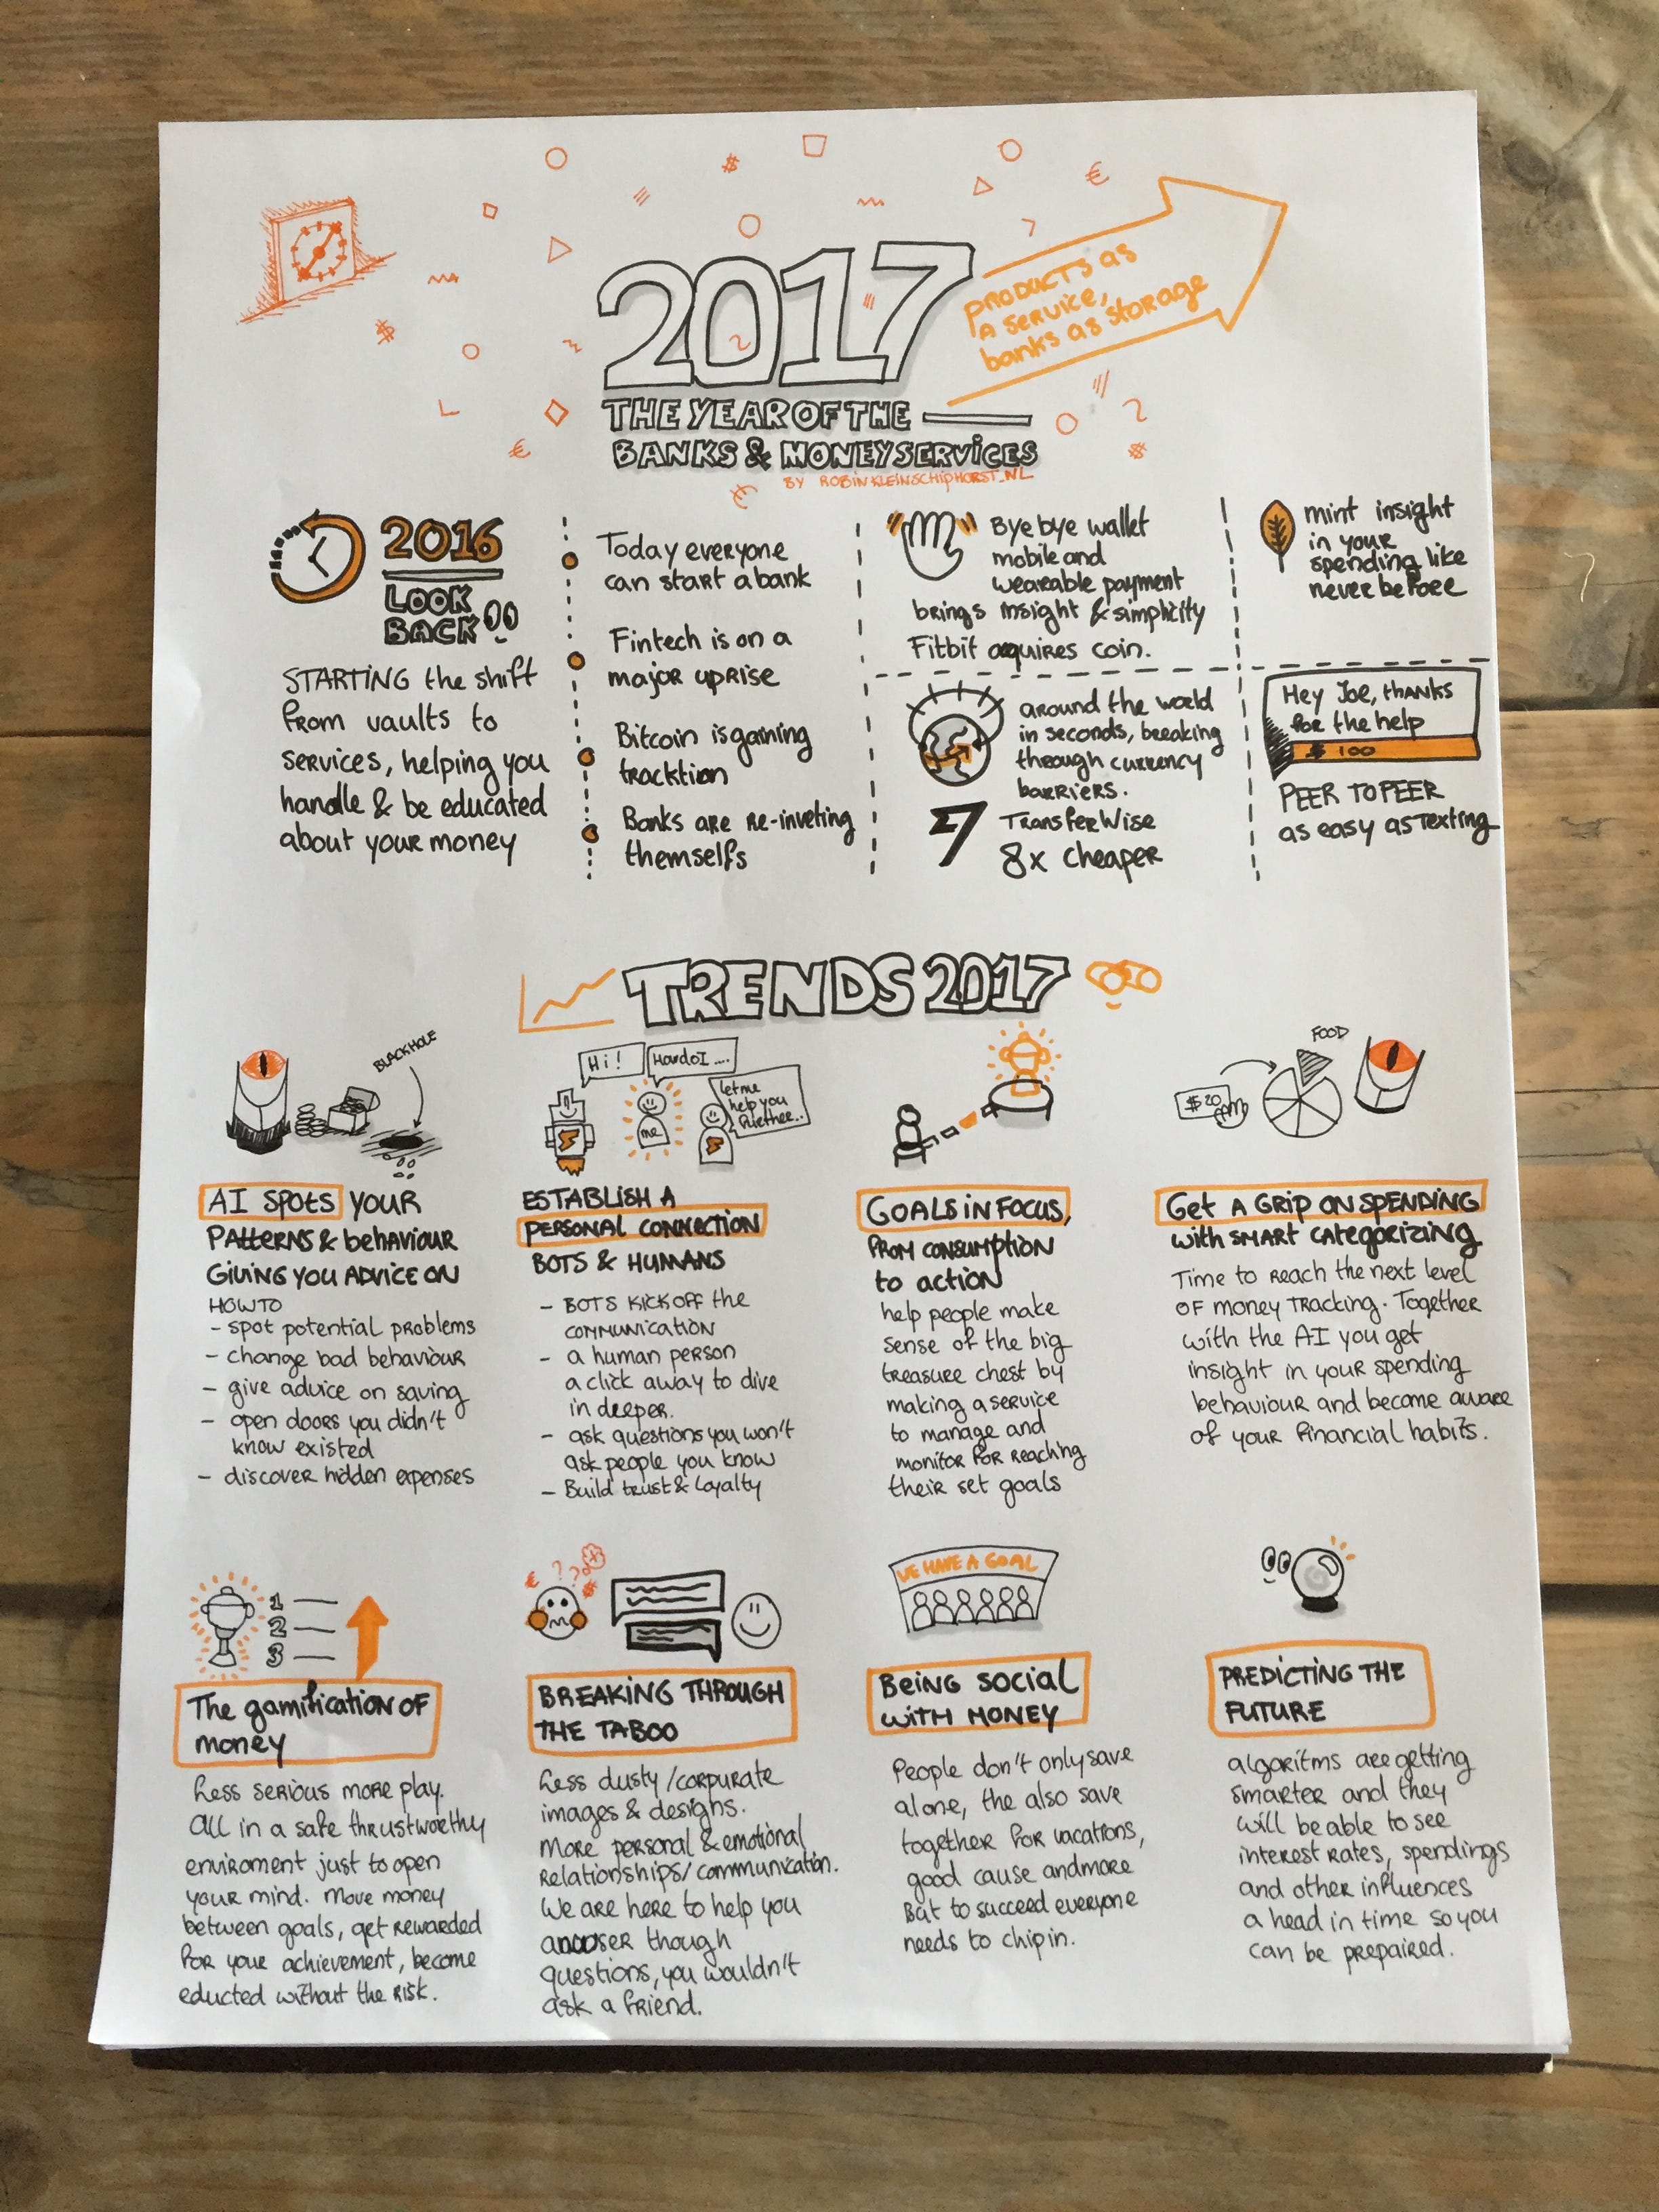 2017
PRODUCTS as
A SERVICE,
banks as storage
THE YEAR OF THE
BANKS & MONEYSERVICES
BY ROBINKLEINSCHIPHORST_NL
2016
LOOK
BACK
STARTING the shift
from vaults to
services, helping you
handle & be educated
about your money
Today everyone
can start a bank
Fintech is on a
major uprise
Bitcoin is gaining
tracktion
Banks are re-inveting
themselfs
Bye bye wallet
mobile and
wearable payment
brings insight & simplicity
Fitbit acquires coin.
around the world
in seconds, breaking
through currency
barriers.
TransferWise
8x cheaper
mint insight
in your
spending like
never before
Hey Joe, thanks
for the help
$ 100
PEER TO PEER
as easy as Texting
TRENDS 2017
BLACKHOLE
AI SPOTS YOUR
PATTERNS & behaviour
GIVING YOU ADVICE ON
HOW TO
- spot potential problems
- change bad behaviour
- give advice on saving
- open doors you didn't
know existed
- discover hidden expenses
Hi!
How do I ....
me
let me
help you
further..
ESTABLISH A
PERSONAL CONNECTION
BOTS & HUMANS
- BOTS KICK OFF the
COMMUNICATION
- a human person
a click away to dive
in deeper.
- ask questions you won't
ask people you know
- Build trust & Loyalty
GOALS IN FOCUS,
FROM CONSUMPTION
to action
help people make
sense of the big
treasure chest by
making a service
to manage and
monitor for reaching
their set goals
$ 20
FOOD
Get A GRIP ON SPENDING
with SMART categorizing
Time to reach the next level
of money tracking. Together
with the AI you get
insight in your spending
behaviour and become aware
of your financial habits.
1
2
3
The gamification OF
money
Less serious more play.
All in a safe thrustworthy
enviroment just to open
your mind. Move money
between goals, get rewarded
for your achievement, become
educted without the risk.
€ ? ? $
BREAKING THROUGH
THE TABOO
Less dusty / corpurate
images & designs.
More personal & emotional
relationships / communication.
We are here to help you
though
questions, you wouldn't
ask a friend.
WE HAVE A GOAL
Being social
with MONEY
People don't only save
alone, the also save
together for vacations,
good cause and more
But to succeed everyone
needs to chip in.
PREDICTING THE
FUTURE
algoritms are getting
smarter and they
will be able to see
interest rates, spendings
and other influences
a head in time so you
can be prepaired.